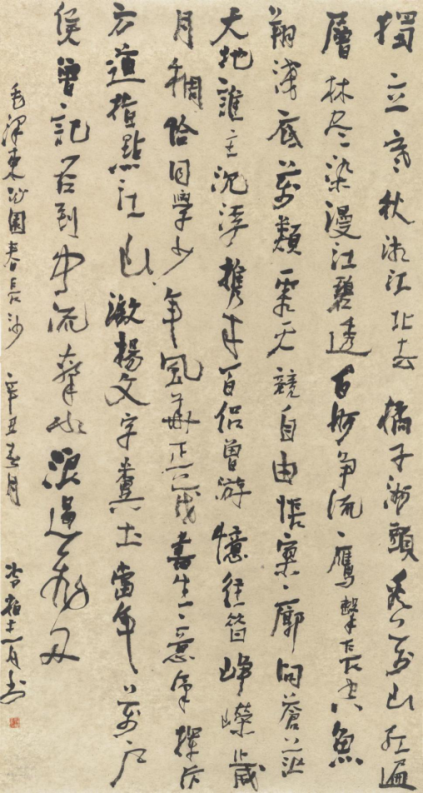 獨立寒秋湘江北去橘子洲頭看萬山紅遍
層林尽染漫江碧透百舸争流鷹擊長空魚
翔淺底萬類霜天競自由悵寥廓問蒼茫
大地誰主沉浮攜来百侣曾游憶往昔峥嵘歲
月稠恰同學少年風華正茂書生意氣揮斥
方遒指點江山激揚文字糞土當年萬户
侯曾記否到中流擊水浪遏飛舟
毛澤東沁園春長沙 辛丑 月 李